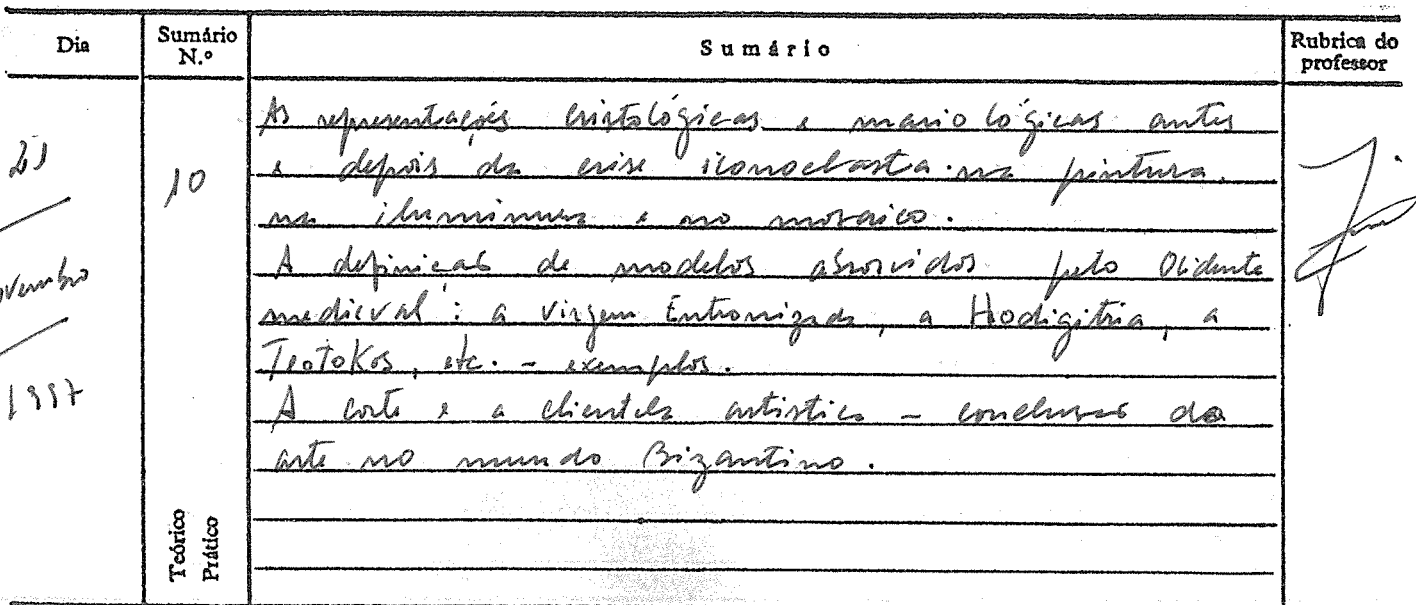 Dia Sumário N.º Sumário Rubrica do professor
21
novembro
1997
10
As representações cristológicas e mariológicas antes
e depois da crise iconoclasta na pintura,
na iluminura e no mosaico.
A definição de modelos absorvidos pelo Ocidente
medieval: a Virgem Entronizada, a Hodigitria, a
Teotokos, etc. - exemplos.
A corte e a clientela artística - conclusão da
arte no mundo Bizantino.
Teórico
Prático